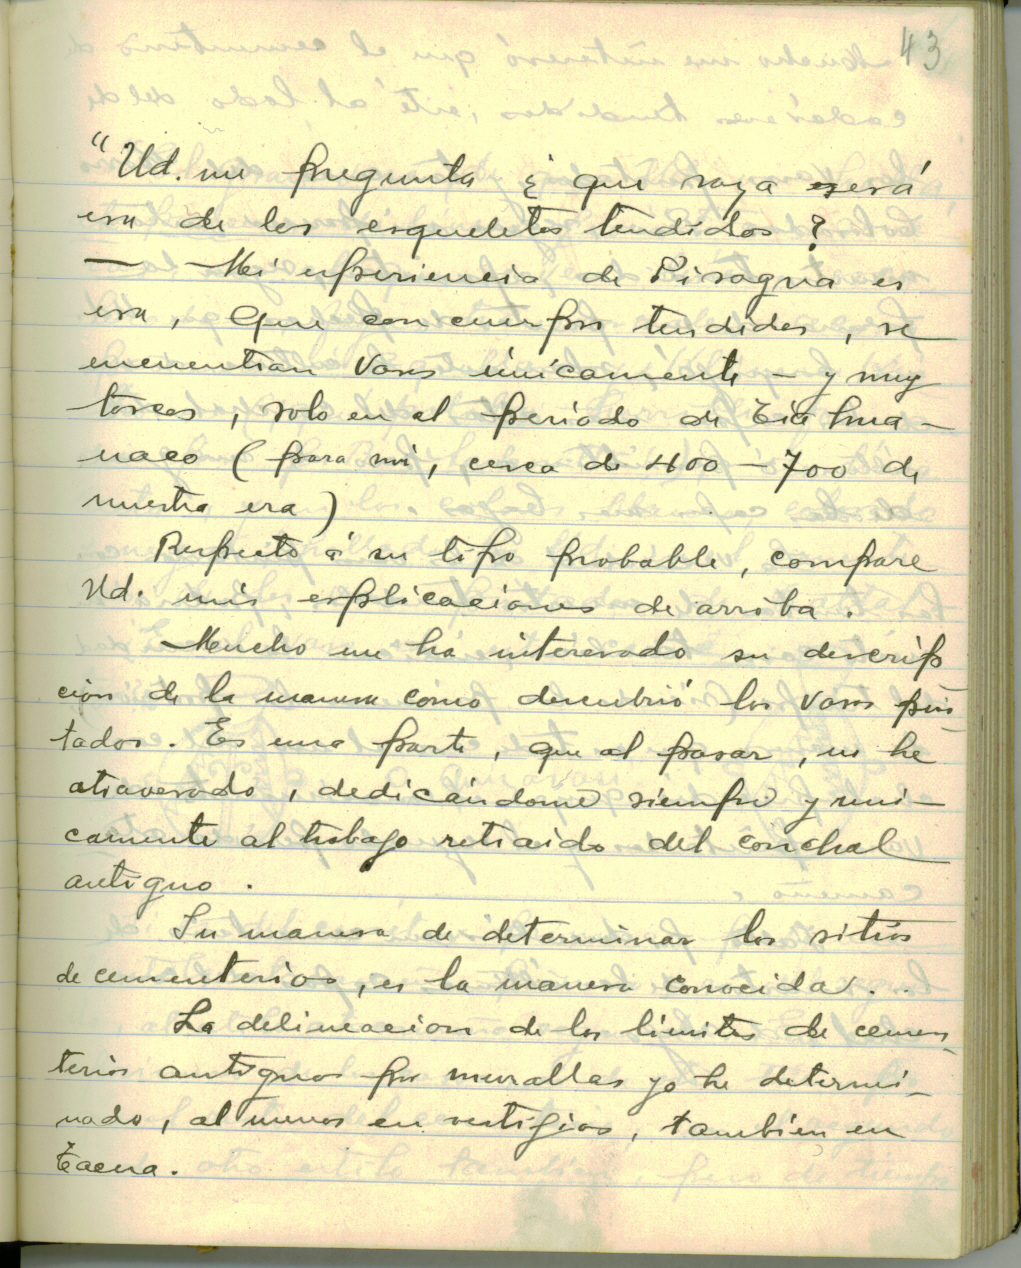 43
"Ud. me pregunta ¿ que raza será
esa de los esqueletos tendidos ?
— Mi esperiencia de Pisagua es
esa, Que con cuerpos tendidos, se
encuentran vasos únicamente — y muy
toscos, solo en el periodo de Tiahua-
naco (para mi, cerca de 400 — 700 de
nuestra era)
Respecto á su tipo probable, compare
Ud. mis esplicaciones de arriba.
Mucho me ha interesado su descrip
cion de la manera cómo descubrió los vasos pin-
tados. Es una parte, que al pasar, me he
atravesado, dedicándome siempre y uni-
camente al trabajo retraido del conchal
antiguo.
Su manera de determinar los sitios
de cementerios, es la manera conocida.
La delineacion de los limites de cemen-
terios antiguos por murallas yo he determi-
nado, al menos en vestigios, tambien en
Tacna.